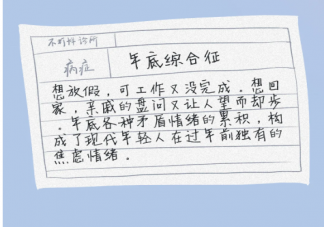 不可解诊所
病症
年底综合征
想放假，可工作又没完成。想回
家，亲戚的盘问又让人望而却步
。年底各种矛盾情绪的累积，构
成了现代年轻人在过年前独有的
焦虑情绪。